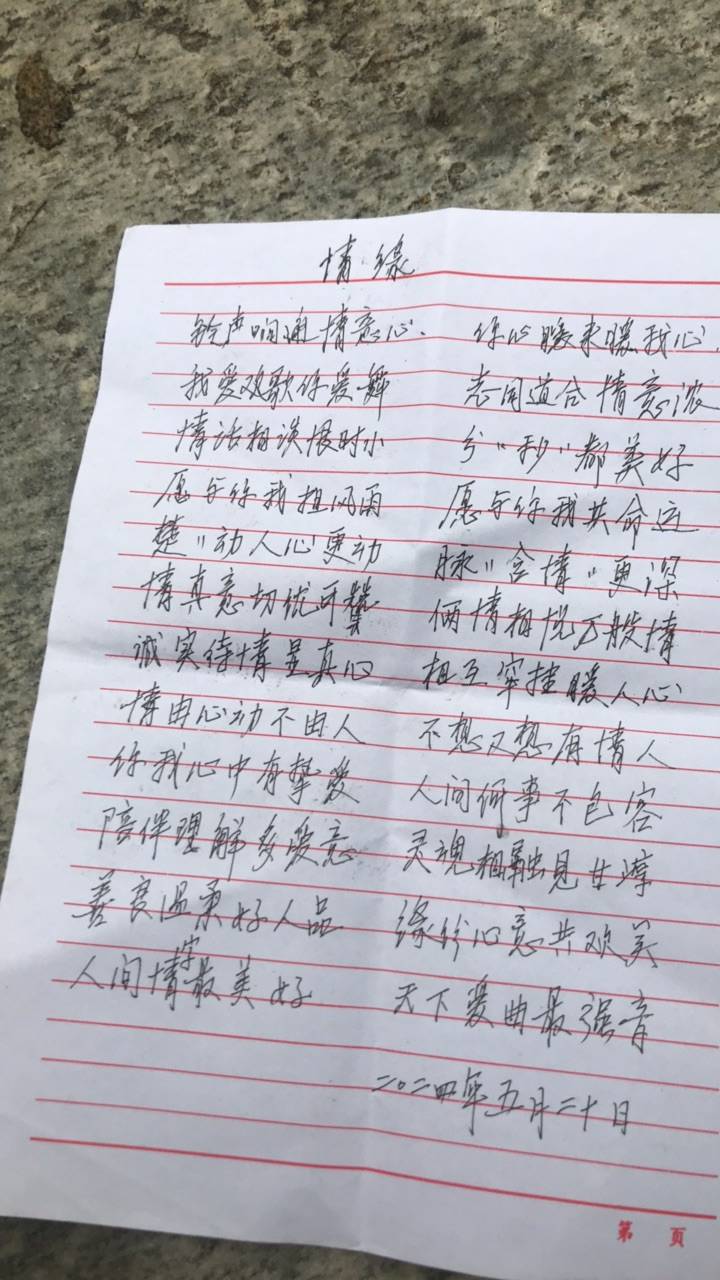 情缘
铃声响通情意心. 你心暖来暖我心
我爱欢歌你爱舞 志同道合情意浓
情话相谈恨时小 分〃秒〃都美好
愿与你我担风雨 愿与你我共命运
楚〃动人心更动 脉〃含情〃更深
情真意切优可赞 俩情相悦万般情
诚实待情是真心 相互牵挂暖人心
情由心动不由人 不想又想有情人
你我心中有挚爱 人间何事不包容
陪伴理解多爱意 灵魂相融见
善良温柔好人品 缘纷心意共欢笑
人间情字最美好 天下爱曲最强音
二〇二四年五月二十日
第 页